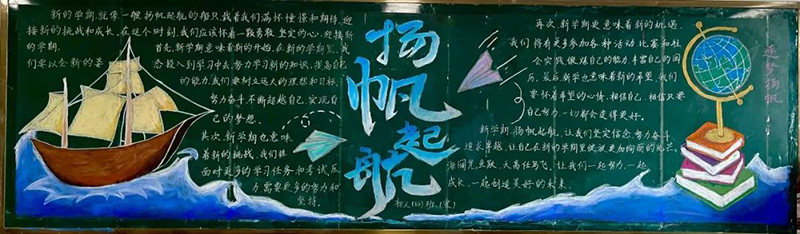 新的学期,就像一艘扬帆起航的船只,载着我们满怀憧憬和期待,迎
接新的挑战和成长。在这个时刻,我们应该怀着一颗勇敢、坚定的心,迎接新
的学期。
首先,新学期意味着新的开始。在新的学期里,我
们要以全新的姿
态投入到学习中去,努力学习新的知识,提高自己
的能力。我们要树立远大的理想和目标,
努力奋斗,不断超越自己,实现自
己的梦想。
其次,新学期也意味
着新的挑战。我们将
面对更多的学习任务和考试压
力,需要更多的努力和
坚持。
扬帆起航
再次,新学期更意味着新的机遇。
我们将有更多参加各种活动、比赛和社
会实践,锻炼自己的能力,丰富自己的阅
历。最后,新学期也意味着新的希望。我们
要怀着希望的心情,相信自己,相信只要
自己努力,一切都会变得更好。
新学期,扬帆起航,让我们坚定信念,努力奋斗,
追求卓越,让自己在新的学期里绽放更加绚丽的光芒。
海阔凭鱼跃,天高任鸟飞,让我们一起努力,一起
成长,一起创造美好的未来。
逐梦扬帆